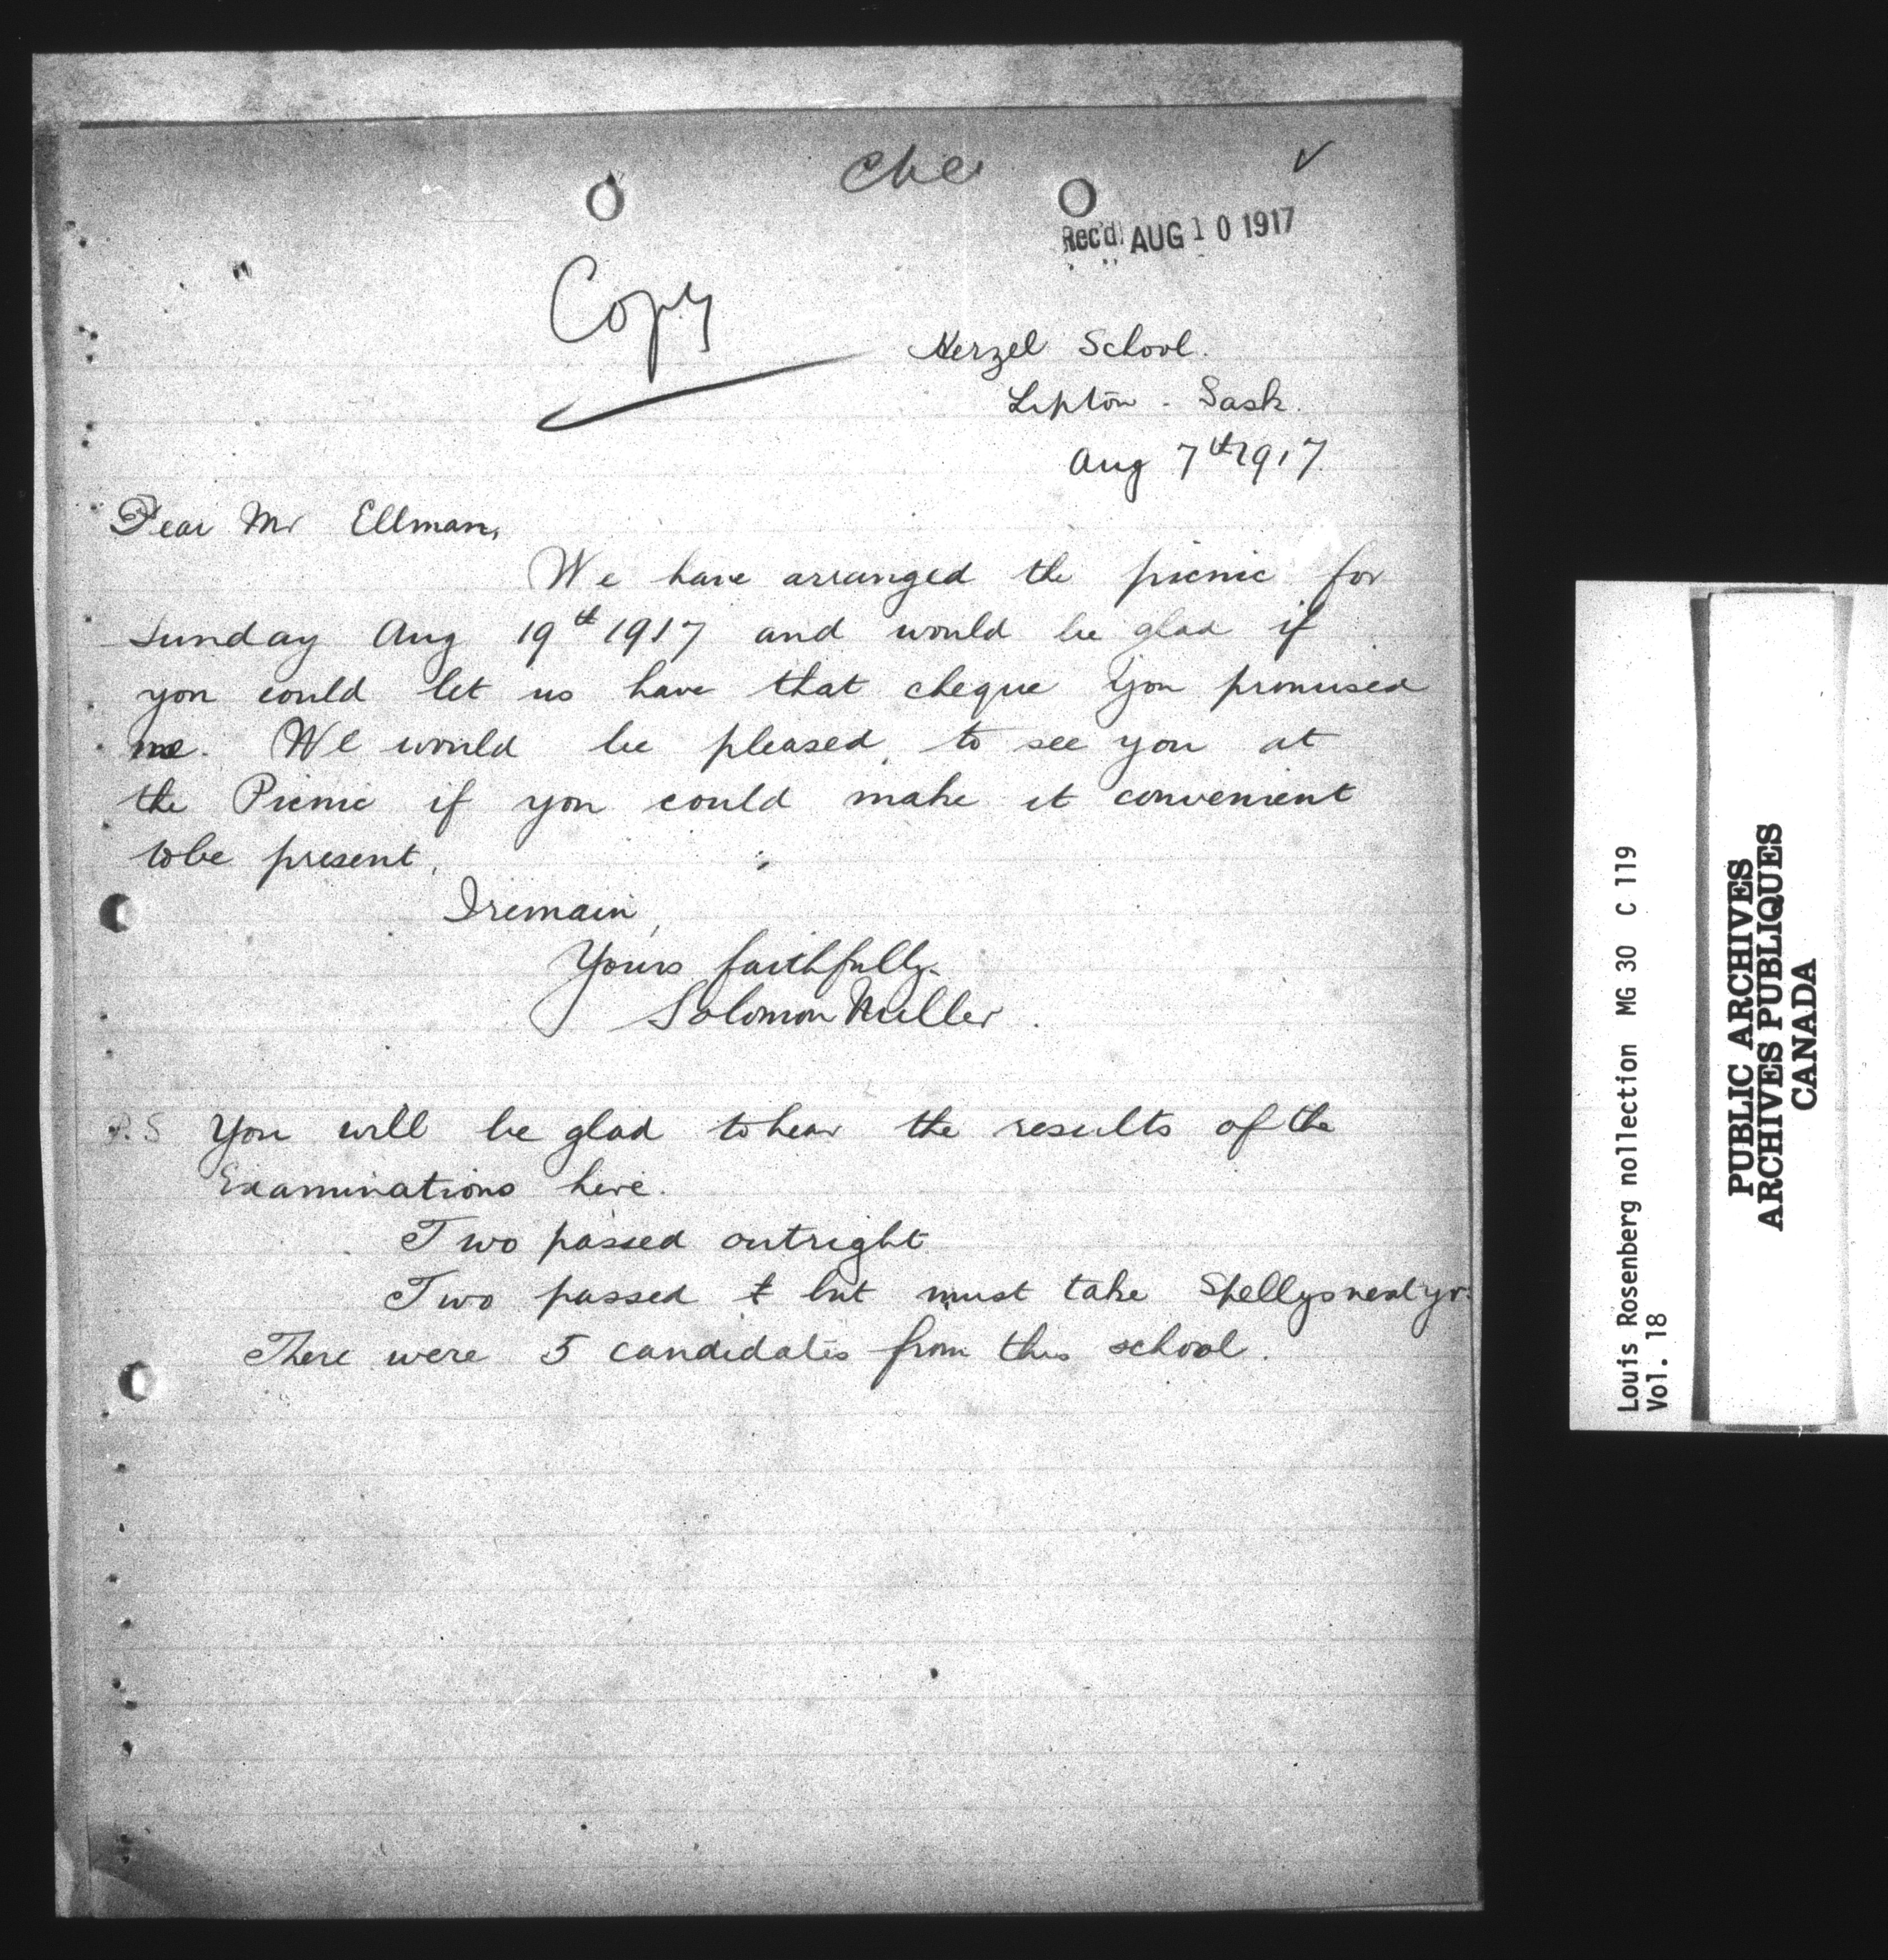 ✓
Rec'd AUG 10 1917
Copy
Herzel School.
Lipton - Sask.
Aug 7th 1917.
Dear Mr Ellman,
We have arranged the picnic for
Sunday Aug 19th 1917 and would be glad if
you could let us have that cheque you promised
me. We would be pleased to see you at
the Picnic if you could make it convenient
to be present.
I remain,
Yours faithfully
Solomon Miller.
P.S You will be glad to hear the results of the
Examinations here.
Two passed outright
Two passed but must take next yr.
There were 5 candidates from this school.
Louis Rosenberg nollection MG 30 C 119
Vol. 18
PUBLIC ARCHIVES
ARCHIVES PUBLIQUES
CANADA